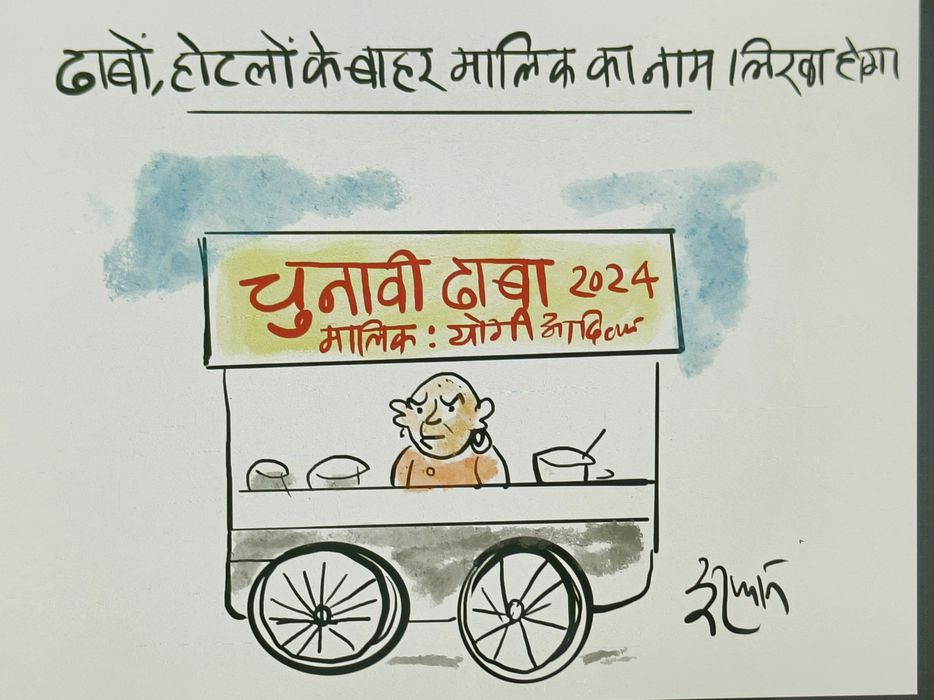 ढाबों, होटलों के बाहर मालिक का नाम लिखा होगा
चुनावी ढाबा 2024
मालिक : योगी आदित्य
इरफान